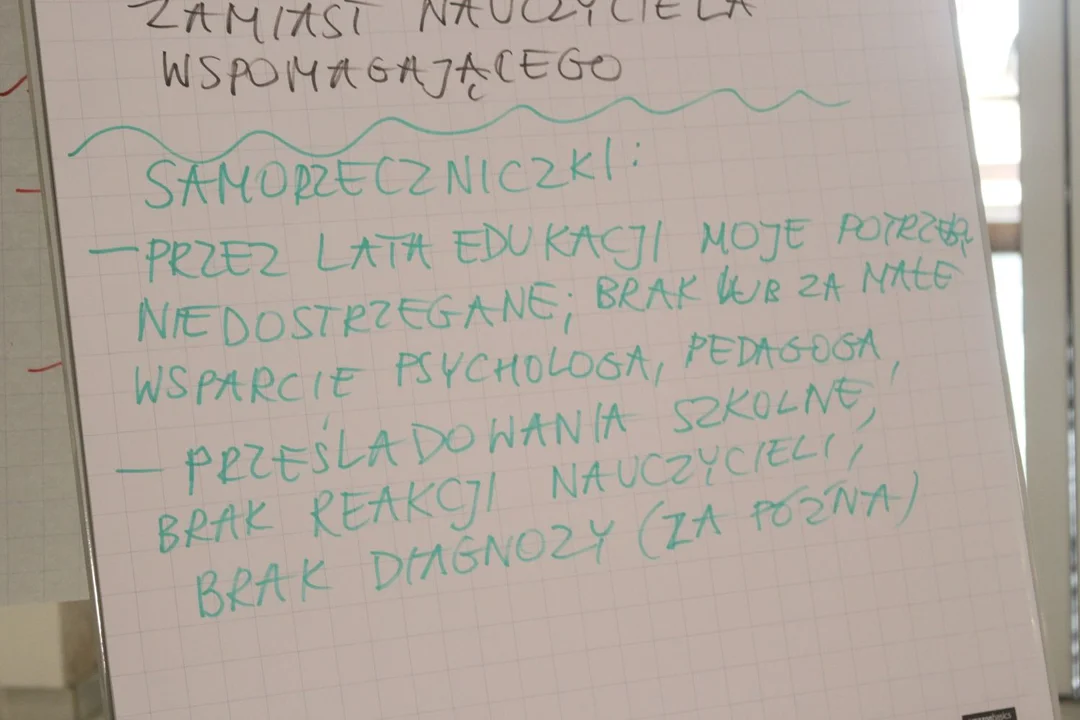 ZAMIAST NAUCZYCIELA
WSPOMAGAJĄCEGO
SAMORZECZNICZKI:
— PRZEZ LATA EDUKACJI MOJE
NIEDOSTRZEGANE; BRAK LUB ZA MAŁE
WSPARCIE PSYCHOLOGA, PEDAGOGA,
— PRZEŚLADOWANIA SZKOLNE,
BRAK REAKCJI NAUCZYCIELI,
BRAK DIAGNOZY (ZA PÓŹNA)